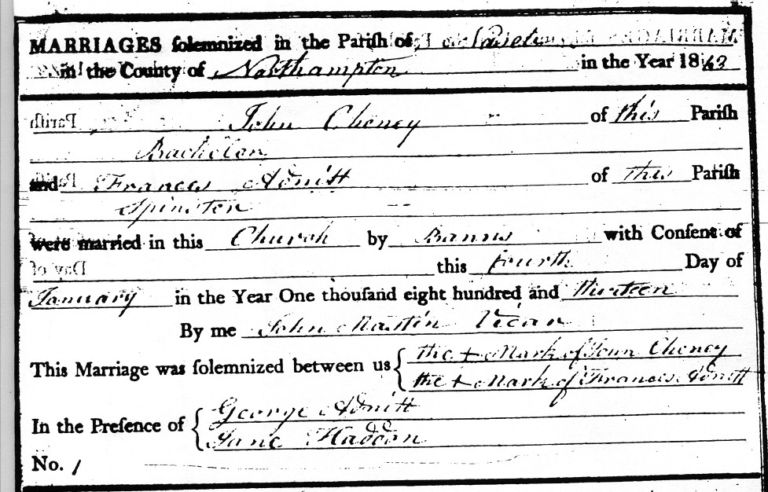 MARRIAGES ſolemnized in the Pariſh of Naseby
in the County of Northampton in the Year 1813
John Cheney of this Pariſh
Bachelor
and Frances Adnitt of this Pariſh
Spinster
were married in this Church by Banns with Conſent of
this fourth Day of
January in the Year One thouſand eight hundred and thirteen
By me John Mastin Vicar
This Marriage was ſolemnized between us the + Mark of John Cheney
the + Mark of Frances Adnitt
In the Preſence of George Adnitt
Jane Haddon
No. 1